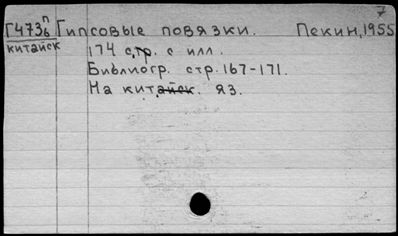 7
Г473п6 Гипсовые повязки. Пекин, 1955
китайск
174 стр. с илл.
Библиогр. стр. 167-171.
На китайск. яз.